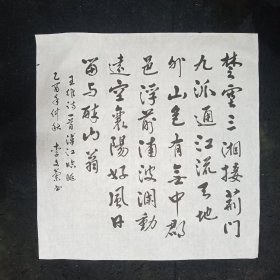 楚塞三湘接荊门
九派通江流天地
外山色有無中郡
邑浮前浦波澜動
遠空襄陽好風日
留与醉山翁
王维诗一首漢江临眺
乙酉年仲秋 李